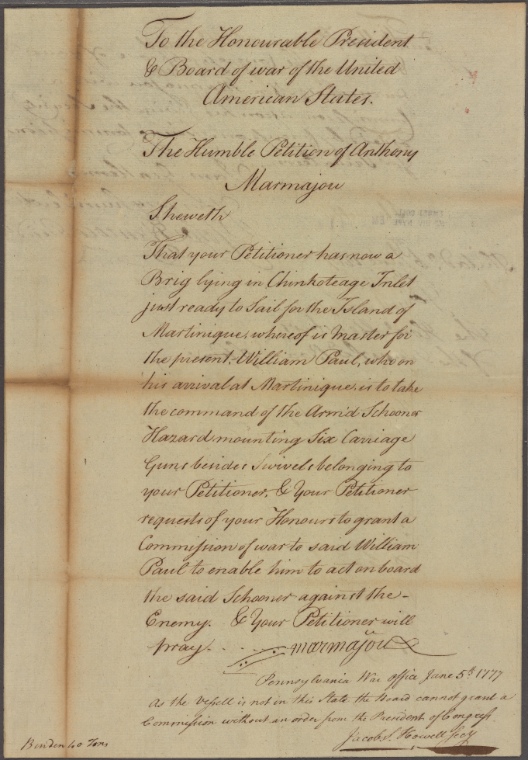 To the Honourable President
& Board of war of the United
American States.
The Humble Petition of Anthony
Marmajou
Sheweth
That your Petitioner has now a
Brig lying in Chinkoteage Inlet
just ready to Sail for the Island of
Martinique, whereof is Master for
the present, William Paul, who on
his arrival at Martinique, is to take
the command of the Arm'd Schooner
Hazard, mounting Six Carriage
Guns besides Swivels belonging to
your Petitioner, & Your Petitioner
requests of your Honours to grant a
Commission of war to said William
Paul to enable him to act on board
the said Schooner against the
Enemy. & Your Petitioner will
pray. . . . . . Marmajou
Pennsylvania War office June 5th 1777
As the Vessell is not in this State the Board cannot grant a
Commission without an order from the President of Congress.
Jacob S. Howell, Secy
Burden 40 Tons